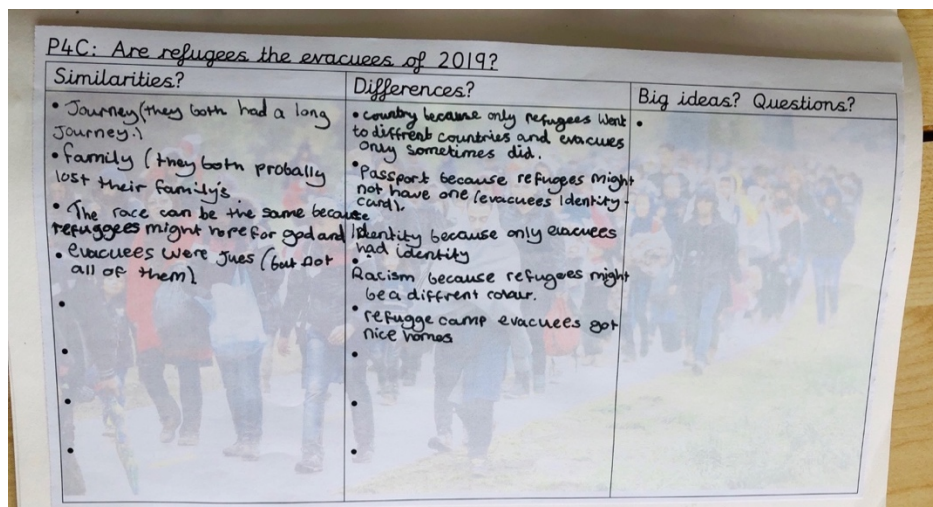 P4C: Are refugees the evacuees of 2019?
Similarities?
• Journey (they both had a long
journey.)
• family (they both probally
lost their family's.
• The race can be the same because
refuggees might hope for god and
• evacuees were Jues (but not
all of them)
Differences?
• country because only refugees went
to diffrent countries and evacues
only sometimes did.
• Passport because refugees might
not have one (evacuees Identity -
card).
Identity because only evacuees
had identity
•
Racism because refugees might
be a diffrent colour.
• refugge camp evacuees got
nice homes
Big ideas? Questions?